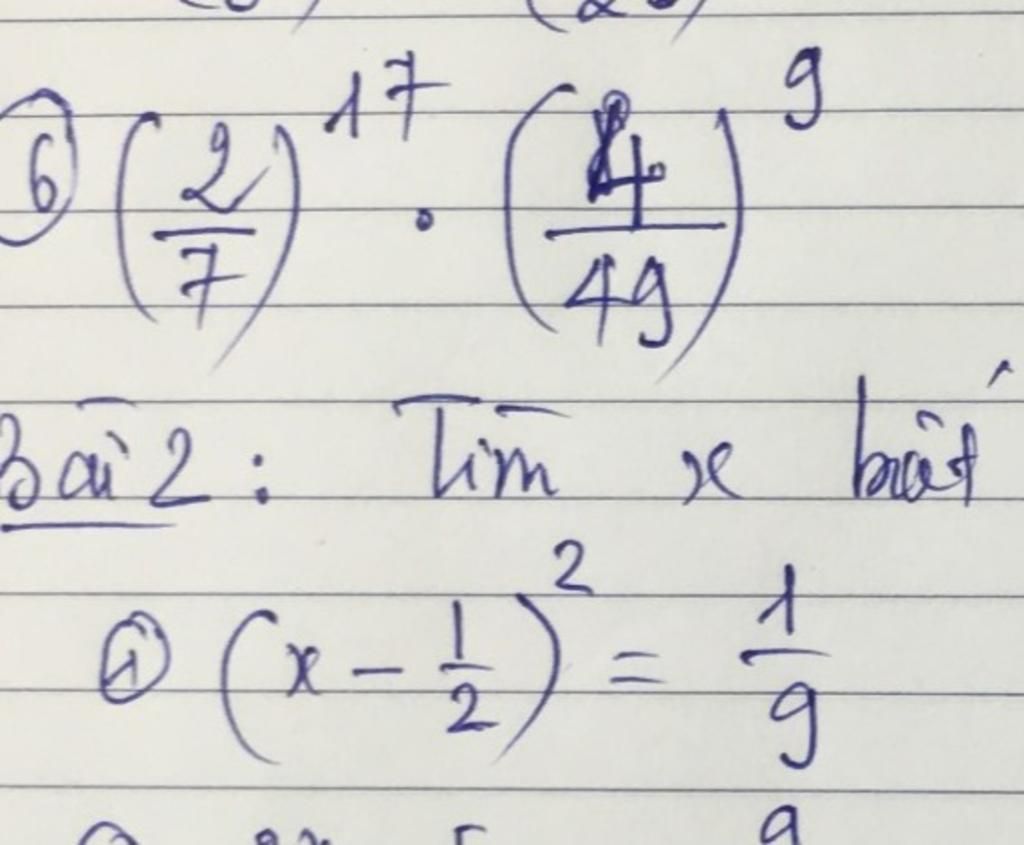 6 (2/7)^17 . (4/49)^9
Bài 2: Tìm x biết
1 (x - 1/2)^2 = 1/9